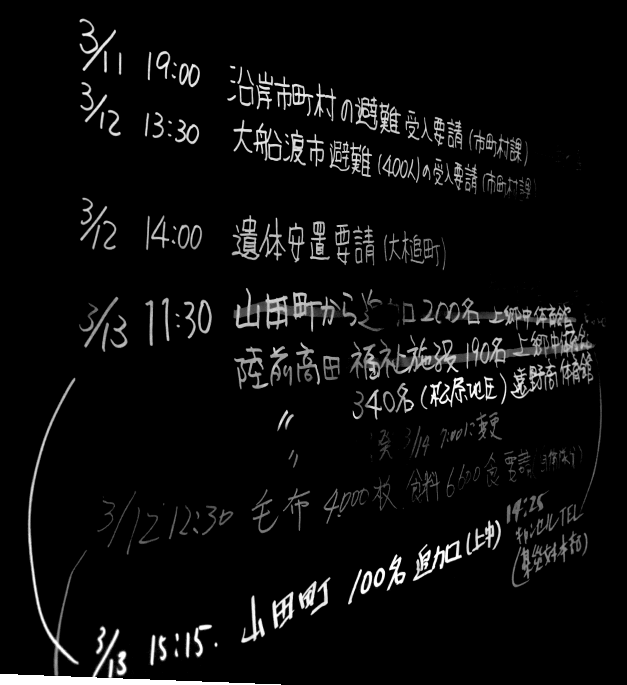 3/11 19:00 沿岸市町村の避難受入要請(市町村課)
3/12 13:30 大船渡市避難(400人)の受入要請(市町村課)
3/12 14:00 遺体安置要請(大槌町)
3/13 11:30 山田町から追加200名 上郷中体育館
陸前高田 福祉施設190名 上郷中体育館
〃 340名(松原地区)遠野高体育館
〃 3/14 7:00に変更
3/12 12:30 毛布 4000枚 食料 6600食 要請
14:25
キャンセルTEL
3/13 15:15. 山田町 100名追加(上中)